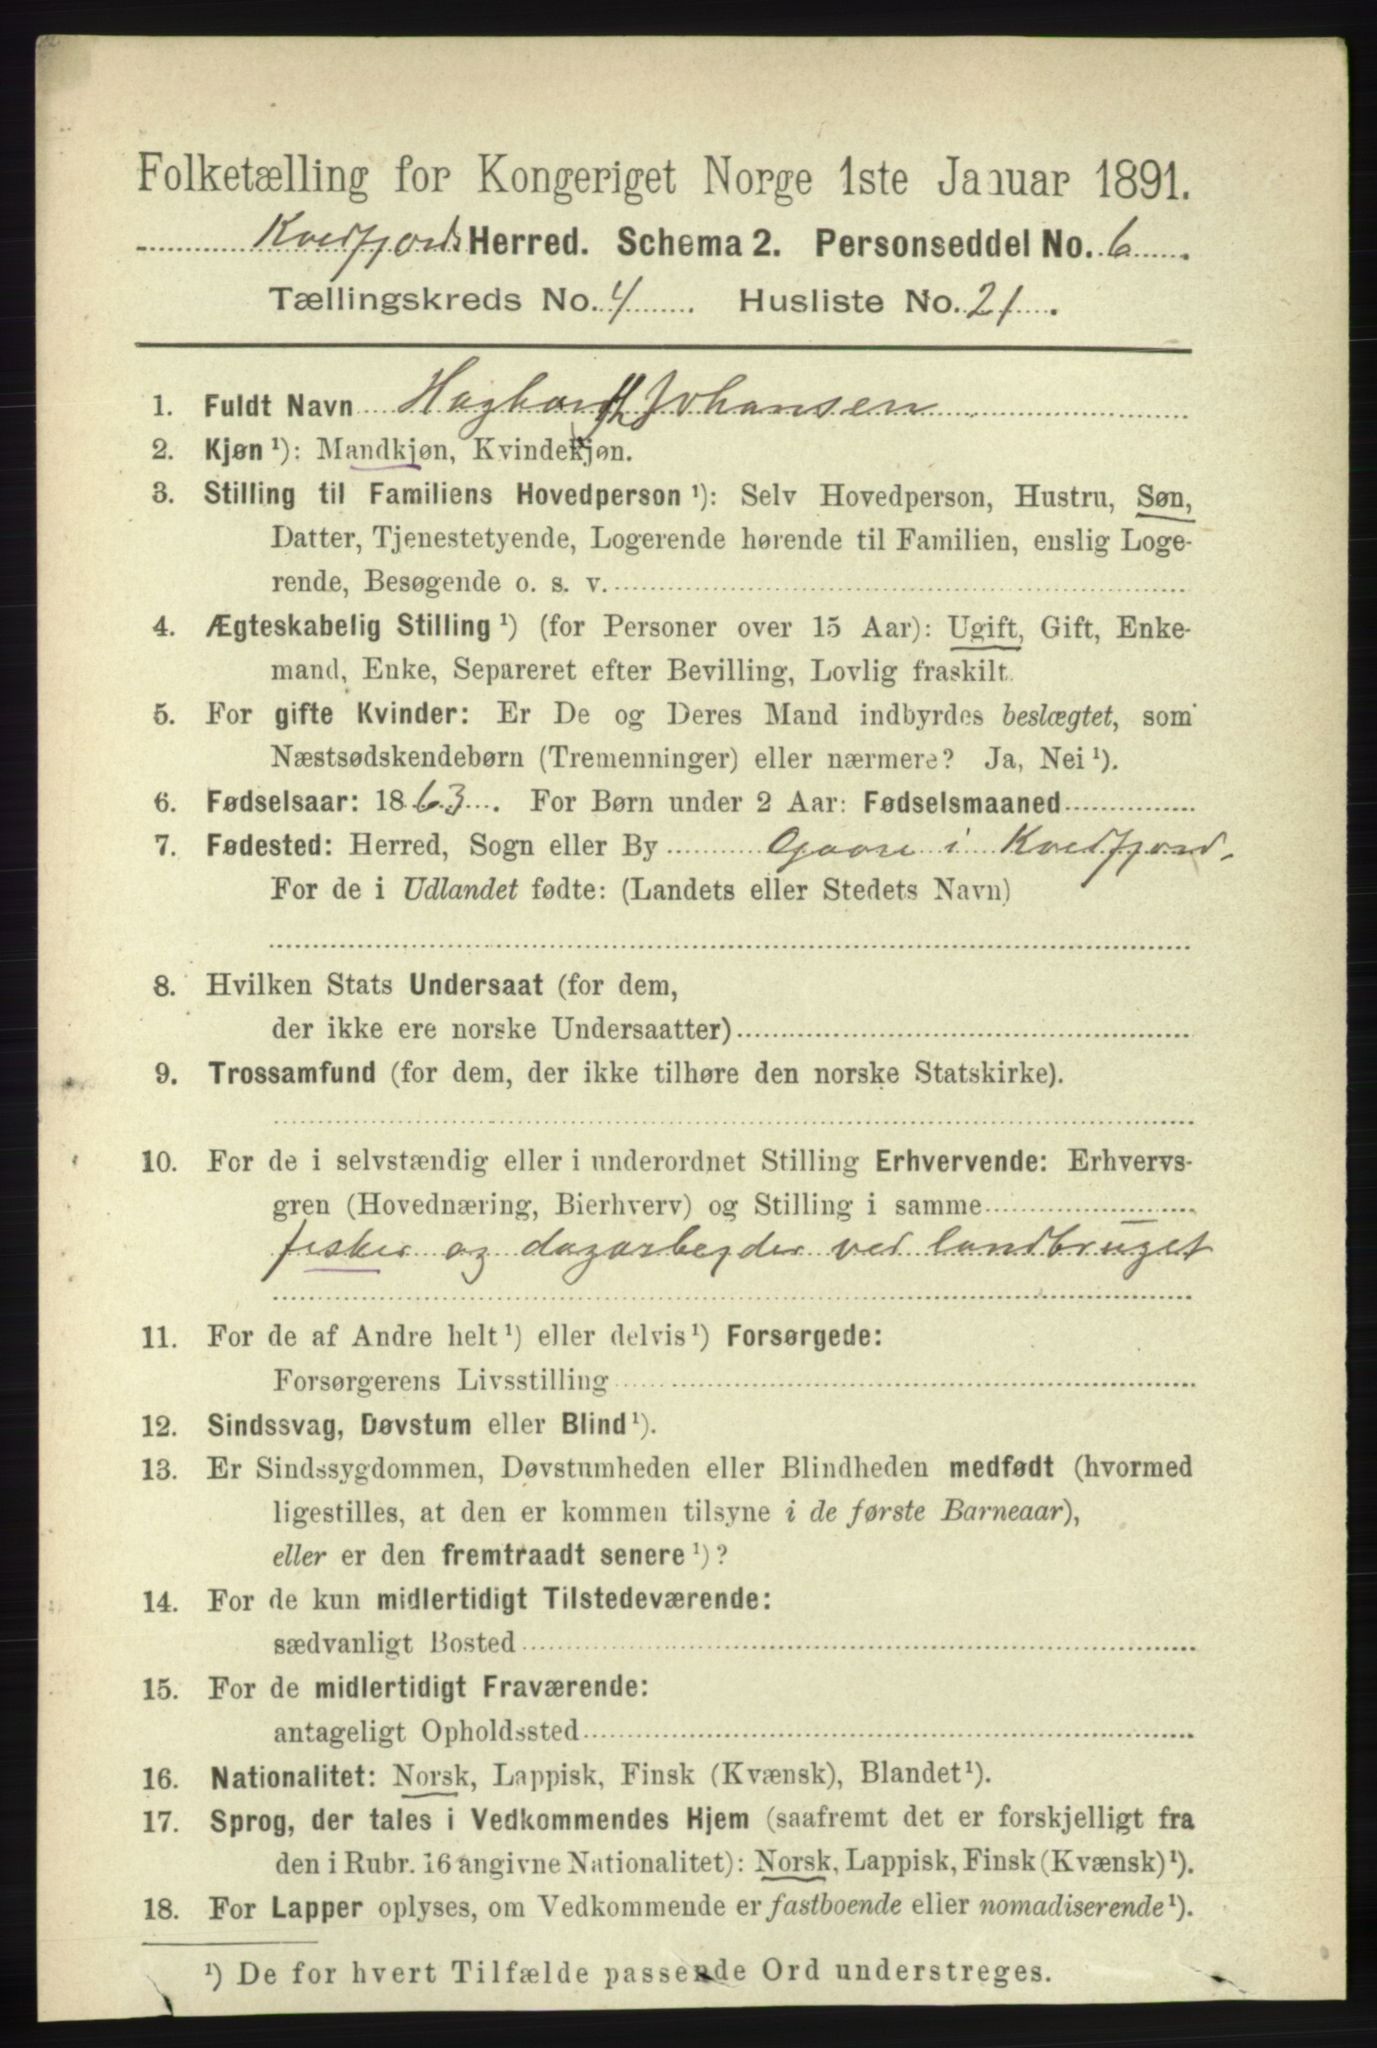 Folketælling for Kongeriget Norge 1ste Januar 1891.
Kvedfjords Herred. Schema 2. Personseddel No. 6.
Tællingskreds No. 4 Husliste No. 21.
1. Fuldt Navn Hagbarth Johansen
2. Kjøn ¹): Mandkjøn, Kvindekjøn.
3. Stilling til Familiens Hovedperson ¹): Selv Hovedperson, Hustru, Søn,
Datter, Tjenestetyende, Logerende hørende til Familien, enslig Loge-
rende, Besøgende o. s. v.
4. Ægteskabelig Stilling ¹) (for Personer over 15 Aar): Ugift, Gift, Enke-
mand, Enke, Separeret efter Bevilling, Lovlig fraskilt.
5. For gifte Kvinder: Er De og Deres Mand indbyrdes beslægtet, som
Næstsødskendebørn (Tremenninger) eller nærmere? Ja, Nei ¹).
6. Fødselsaar: 1863. For Børn under 2 Aar: Fødselsmaaned
7. Fødested: Herred, Sogn eller By Gaare i Kvedfjord.
For de i Udlandet fødte: (Landets eller Stedets Navn)
8. Hvilken Stats Undersaat (for dem,
der ikke ere norske Undersaatter)
9. Trossamfund (for dem, der ikke tilhøre den norske Statskirke).
10. For de i selvstændig eller i underordnet Stilling Erhvervende: Erhvervs-
gren (Hovednæring, Bierhverv) og Stilling i samme
fisker og dagarbejder ved landbruget
11. For de af Andre helt ¹) eller delvis ¹) Forsørgede:
Forsørgerens Livsstilling
12. Sindssvag, Døvstum eller Blind ¹).
13. Er Sindssygdommen, Døvstumheden eller Blindheden medfødt (hvormed
ligestilles, at den er kommen tilsyne i de første Barneaar),
eller er den fremtraadt senere ¹)?
14. For de kun midlertidigt Tilstedeværende:
sædvanligt Bosted
15. For de midlertidigt Fraværende:
antageligt Opholdssted
16. Nationalitet: Norsk, Lappisk, Finsk (Kvænsk), Blandet ¹).
17. Sprog, der tales i Vedkommendes Hjem (saafremt det er forskjelligt fra
den i Rubr. 16 angivne Nationalitet): Norsk, Lappisk, Finsk (Kvænsk) ¹).
18. For Lapper oplyses, om Vedkommende er fastboende eller nomadiserende ¹).
¹) De for hvert Tilfælde passende Ord understreges.